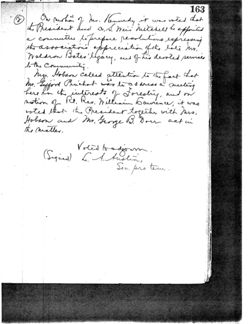 163
On motion of Mr. Kennedy it was voted that
the President and Dr. S. Weir Mitchell be appointed
a committee to prepare resolutions expressing
the association's appreciation of the late Mr.
Waldron Bates' legacy, and of his devoted services
to the Community.
Mrs. Hobson called attention to the fact that
Mr. Gifford Pinchot was to address a meeting
here in the interests of Forestry, and on
motion of Rt. Rev. William Lawrence, it was
voted that the President together with Mrs.
Hobson and Mr. George B. Dorr act in
the matter.
Voted to adjourn.
(Signed)
Sec. pro tem.